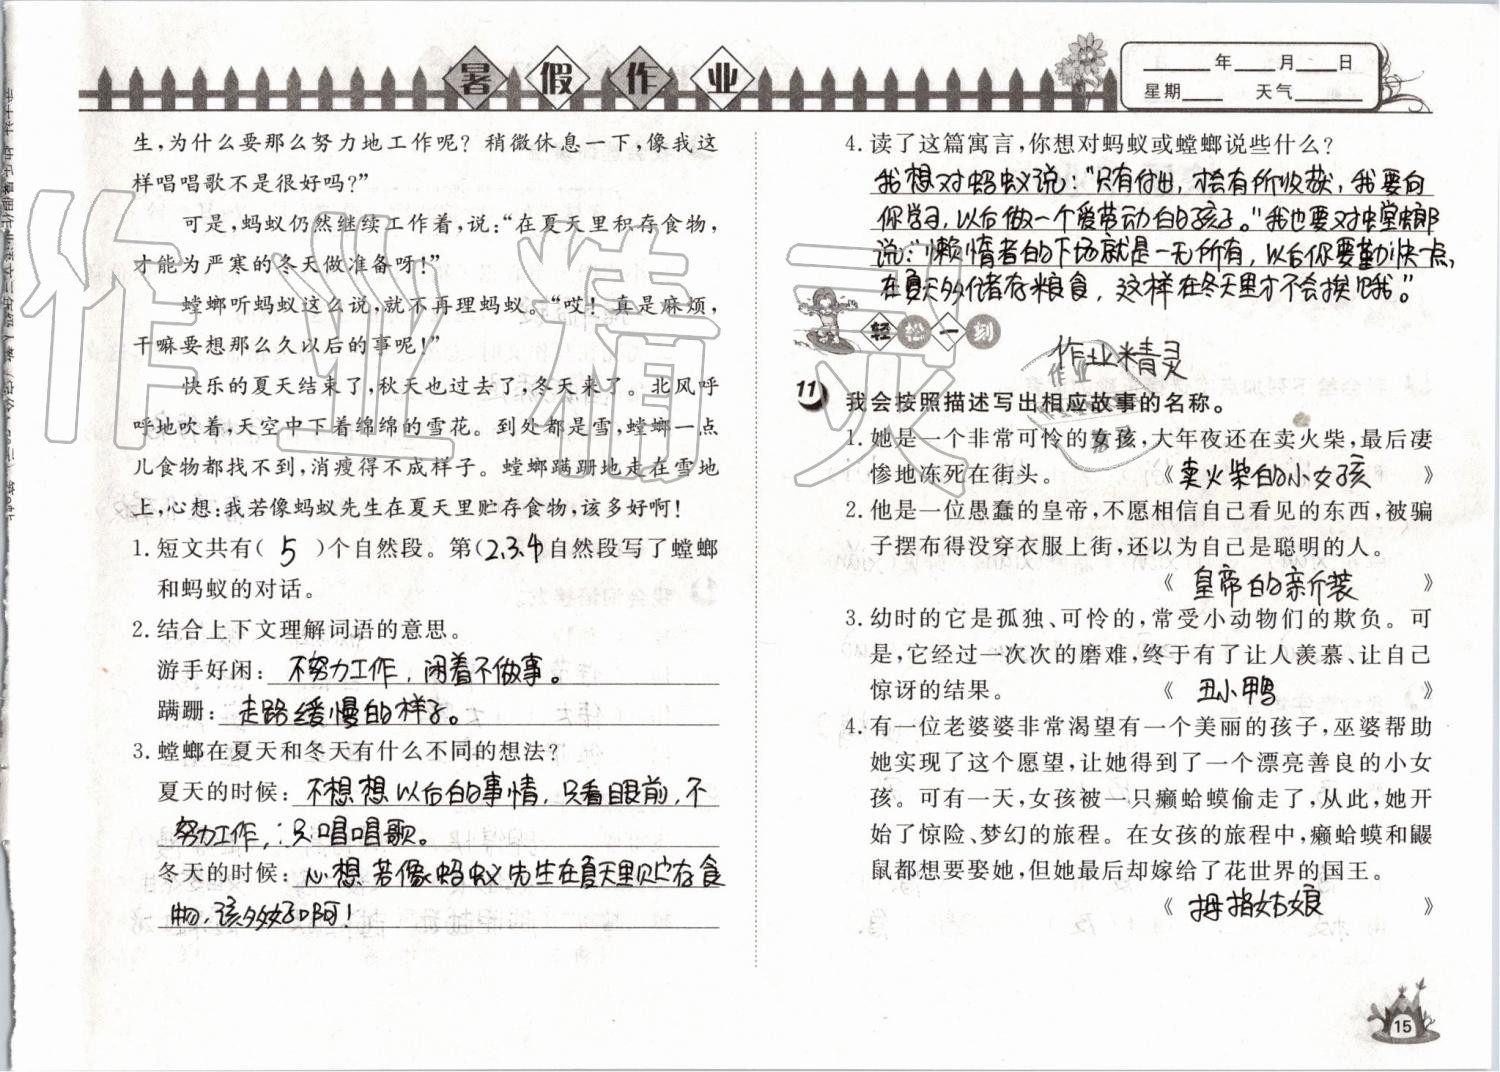 暑假作业
____年____月____日
星期____ 天气____
生,为什么要那么努力地工作呢?稍微休息一下,像我这
样唱唱歌不是很好吗?”
可是,蚂蚁仍然继续工作着,说:“在夏天里积存食物,
才能为严寒的冬天做准备呀!”
螳螂听蚂蚁这么说,就不再理蚂蚁。“哎!真是麻烦,
干嘛要想那么久以后的事呢!”
快乐的夏天结束了,秋天也过去了,冬天来了。北风呼
呼地吹着,天空中下着绵绵的雪花。到处都是雪,螳螂一点
儿食物都找不到,消瘦得不成样子。螳螂蹒跚地走在雪地
上,心想:我若像蚂蚁先生在夏天里贮存食物,该多好啊!
1.短文共有( 5 )个自然段。第(2.3.4自然段写了螳螂
和蚂蚁的对话。
2.结合上下文理解词语的意思。
游手好闲:不努力工作,闲着不做事。
蹒跚:走路缓慢的样子。
3.螳螂在夏天和冬天有什么不同的想法?
夏天的时候:不想想以后的事情,只看眼前,不
努力工作,只唱唱歌。
冬天的时候:心想若像蚂蚁先生在夏天里贮存食
物,该多好啊!
4.读了这篇寓言,你想对蚂蚁或螳螂说些什么?
我想对蚂蚁说:“只有付出,才会有所收获,我要向
你学习,以后做一个爱劳动的孩子。”我也要对螳螂
说:“懒惰者的下场就是一无所有,以后你要勤快一点,
在夏天多储存粮食,这样在冬天里才不会挨饿。”
轻松一刻
作业精灵
11 我会按照描述写出相应故事的名称。
1.她是一个非常可怜的女孩,大年夜还在卖火柴,最后凄
惨地冻死在街头。 《卖火柴的小女孩》
2.他是一位愚蠢的皇帝,不愿相信自己看见的东西,被骗
子摆布得没穿衣服上街,还以为自己是聪明的人。
《皇帝的新装》
3.幼时的它是孤独、可怜的,常受小动物们的欺负。可
是,它经过一次次的磨难,终于有了让人羡慕、让自己
惊讶的结果。 《丑小鸭》
4.有一位老婆婆非常渴望有一个美丽的孩子,巫婆帮助
她实现了这个愿望,让她得到了一个漂亮善良的小女
孩。可有一天,女孩被一只癞蛤蟆偷走了,从此,她开
始了惊险、梦幻的旅程。在女孩的旅程中,癞蛤蟆和鼹
鼠都想要娶她,但她最后却嫁给了花世界的国王。
《拇指姑娘》
15
作业精灵